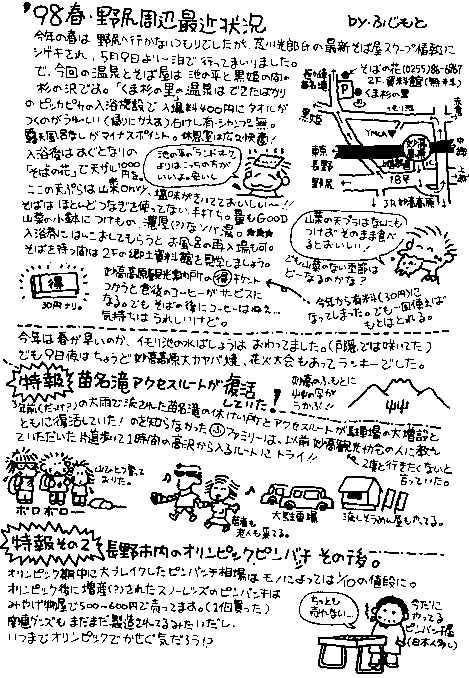 '98春・野尻周辺最近状況
by.ふじもと
今年の春は野尻へ行かないつもりでしたが、及川光郎Gの最新そば屋スクープ情報に
シゲキされ、5月9日より一泊で行ってまいりました。
で、今回の温泉とそば屋は池の平と黒姫の間の
杉の沢でよ。「くま杉の里」の温泉はできたばかり
のピッカピカの入浴施設で入場料400円にタオルが
つくのがうれしい(縁りにつえる)石けん有・シャンプー無。
露天風呂なしがマイナスポイント。休憩室は広々快適!
入浴後はおとなりの
「そばの花」で天ザル1000円を。
ここの天ぷらは山菜ONLY、塩味がきいてておいしい〜!!
そばはほとんどつなぎを使ってない手打ち。量もGOOD
山菜の小鉢につけもの、濃厚(?)なソバ湯 ☆☆☆☆
入浴券にはんこおしてもらうとお風呂の再入場も可。
そばを待つ間は2Fの郷土資料館を見学しましょう。
池の平のランドマークよりはこっちの方がいいよ。安いし
そばの花(0255)86-6867
2F.資料館(無料)
くま杉の里
P
黒姫
YMCA
東京
長野
野尻
18号
JR妙高高原
中郷
山菜のテンプラはなんにもつけずそのまま食べるとおいしい!
でも山菜のない季節はどーなるのかな?
得
30円ナリ。
妙高高原観光案内所の得チケット
つかうと食後のコーヒーがサービスに
なる。でもそばの後にコーヒーはねえ…
気持ちはうれしいけど。
今年から有料(30円)に
なってしまった。でも一回使えば
もとはとれる。
今年は春が早いのか、イモリ池の水ばしょうはおわってました。(戸隠では咲いてた)
でも9日夜はちょうど妙高高原大カヤバ焼、花火大会もあってラッキーでした。
特報 苗名滝アクセスルートが復活していた!
妙高のふもとに
山の字が
うかぶ!!
3年前(だっけ?)の大雨で流された苗名滝の休けい所とアクセスルートが駐車場の大増設と
ともに復活していた!のを知らなかったふファミリーは、以前妙高観光協会の人に教え
ていただいた片道歩って1時間の高沢から入るルートにトライ!!
2度と行きたくないと
言っていた。
山2つ越えて
おりた。
ボロボロー
若者も
老人も来てる。
大駐車場
流しそうめん屋もやってる。
特報その2 長野市内のオリンピックピンバッチその後。
オリンピック期中に大ブレイクしたピンバッチ相場はモノによっては1/10の値段に。
オリンピック後に増産(?)されたスノーレッズのピンバッチは
みやげ物屋で500〜600円で売ってます。(1個買った)
関連グッズもまだまだ製造されてるみたいだし、
いつまでオリンピックでかせぐ気だろう!?
ちっとも
売れない…
今だに
やってる
ピンバッチ屋
(日本人多し)